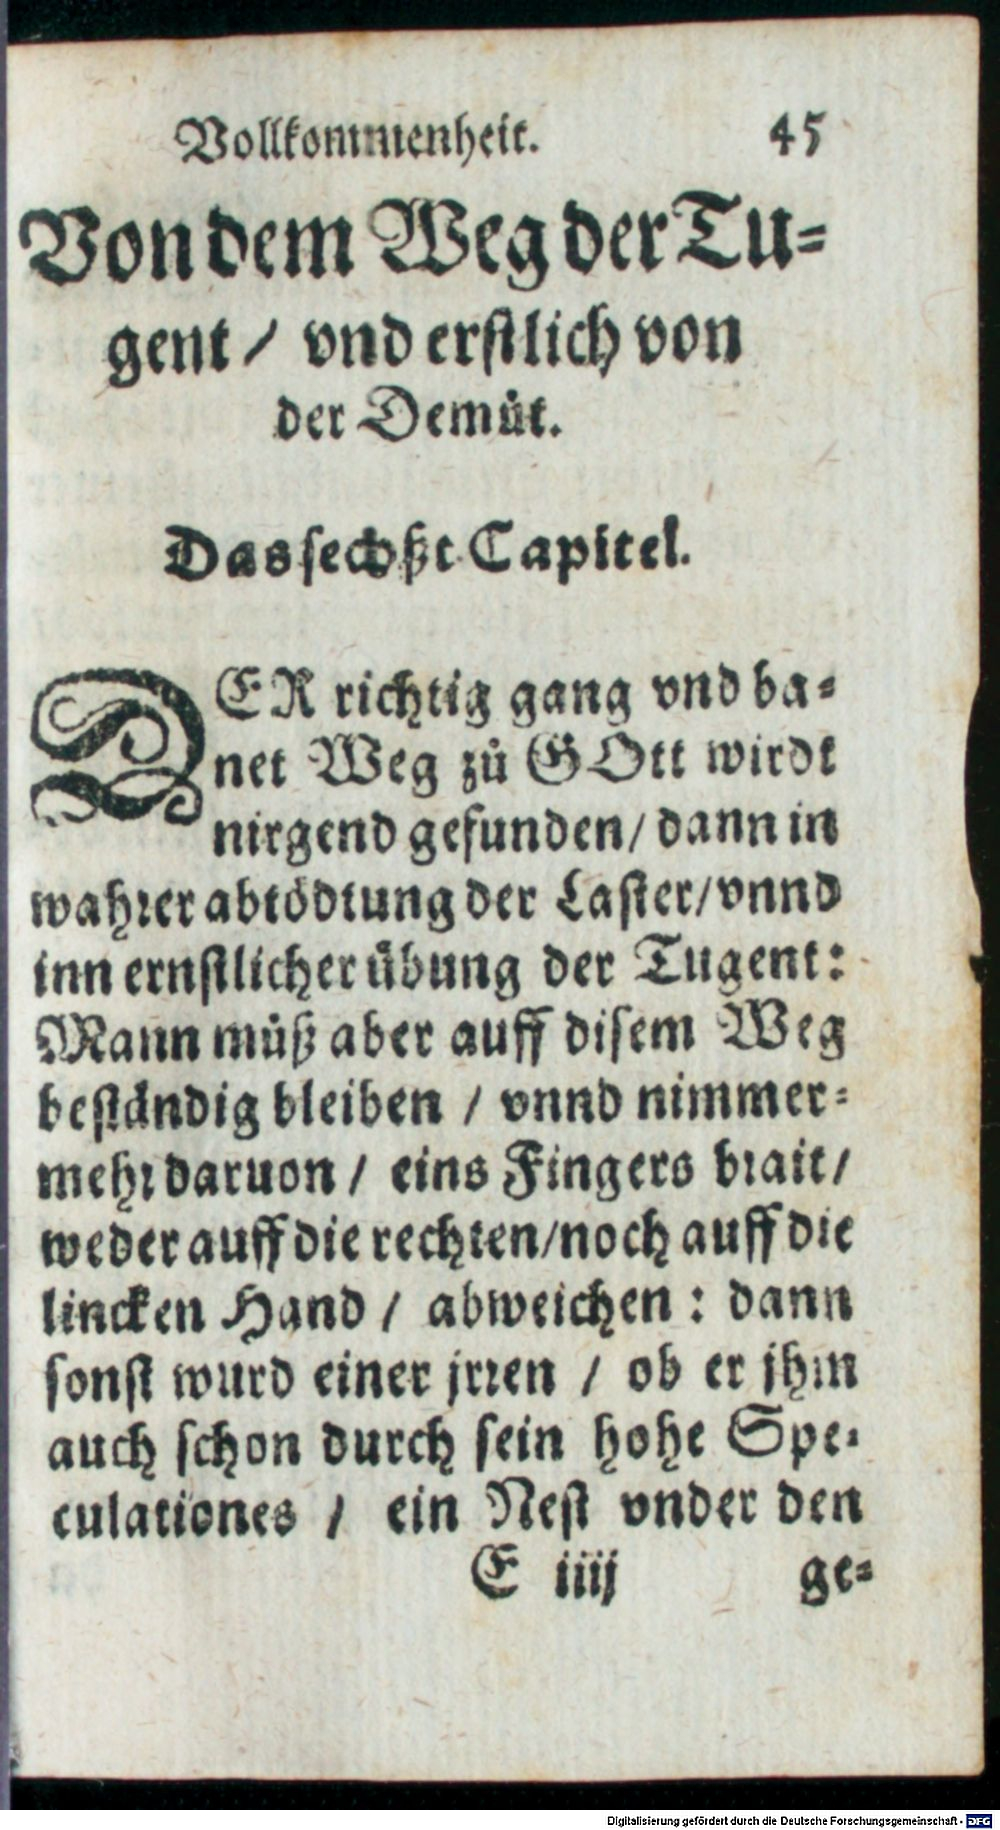 Vollkommenheit. 45
Von dem Weg der Tu-
gent / vnd erstlich von
der Demůt.
Das sechßt Capitel.
DER richtig gang vnd ba-
net Weg zů GOtt wirdt
nirgend gefunden / dann in
wahrer abtödtung der Laster / vnnd
inn ernstlicher übung der Tugent:
Mann můß aber auff disem Weg
beständig bleiben / vnnd nimmer-
mehr daruon / eins Fingers brait /
weder auff die rechten / noch auff die
lincken Hand / abweichen : dann
sonst wurd einer jrren / ob er jhm
auch schon durch sein hohe Spe-
culationes / ein Nest vnder den
E iiij ge-
Digitalisierung gefördert durch die Deutsche Forschungsgemeinschaft - DFG